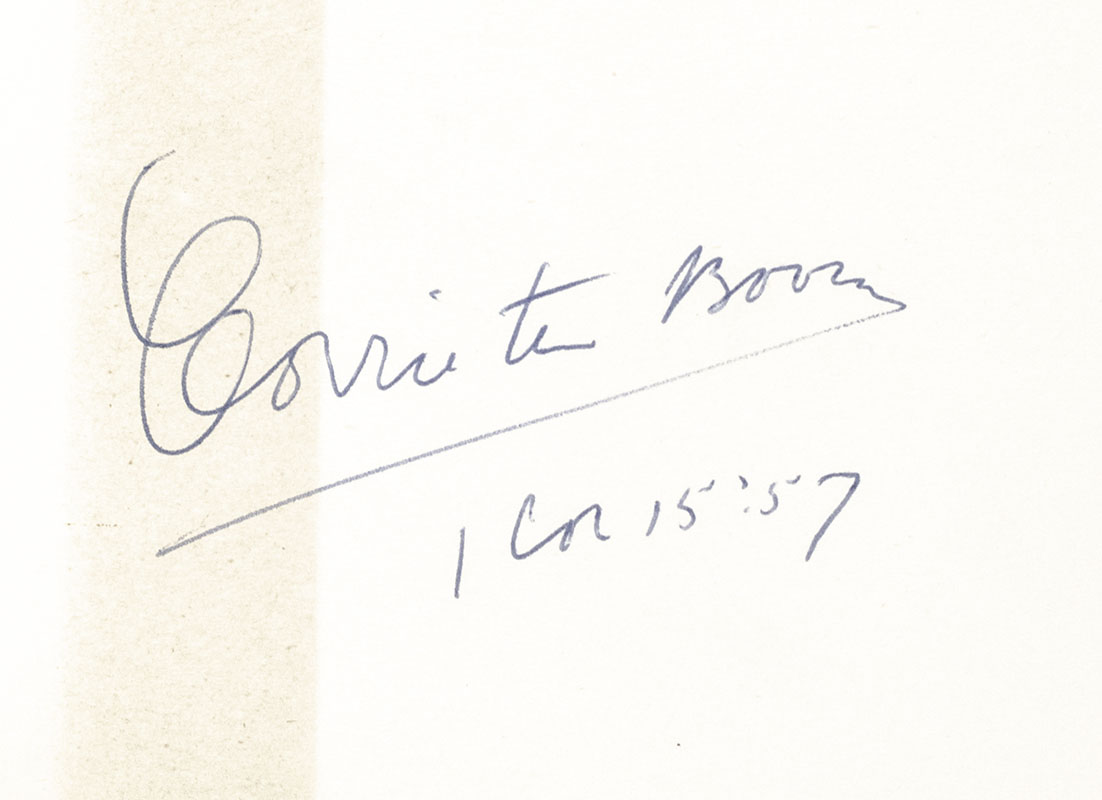 Corrie ten Boom
1 Cor 15:57